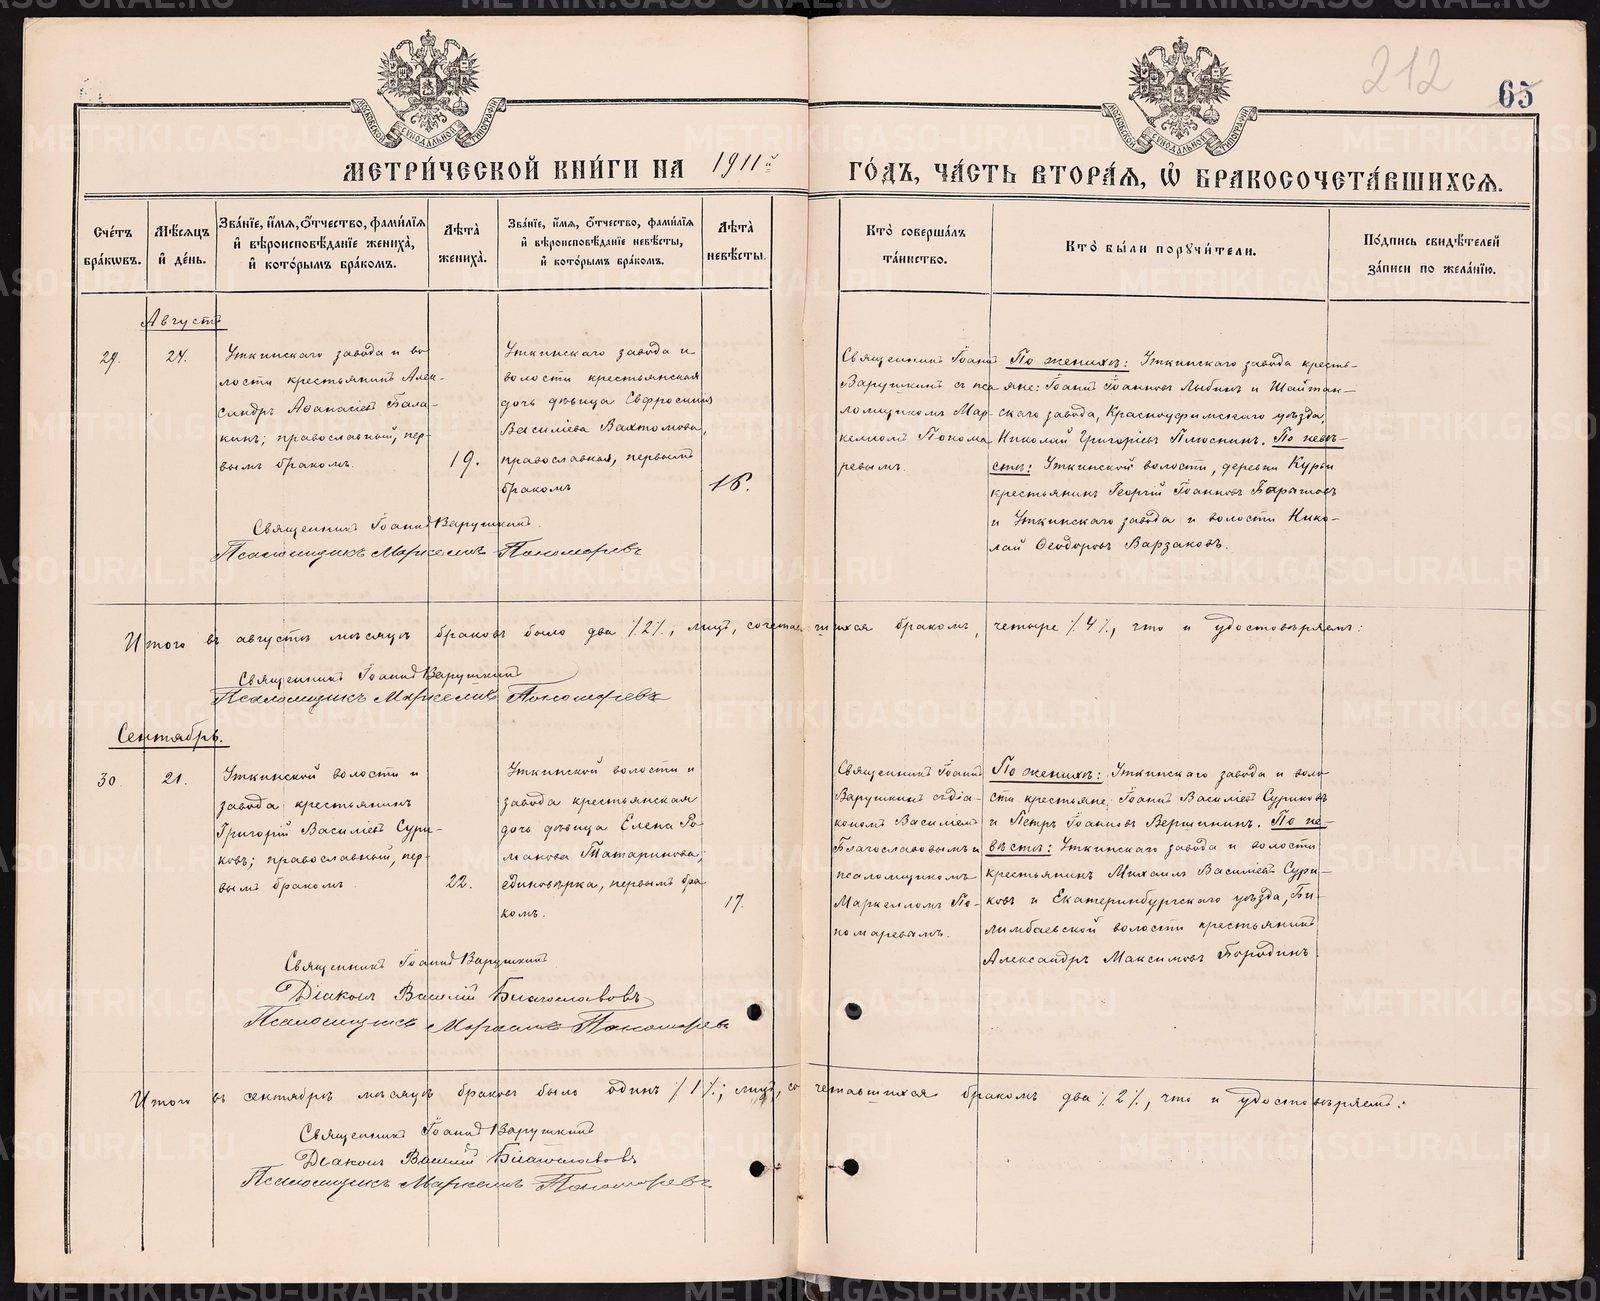 212
65
МОСКОВСКОЙ СѴНОДАЛЬНОЙ ТИПОГРАФІИ
МОСКОВСКОЙ СѴНОДАЛЬНОЙ ТИПОГРАФІИ
МЕТРИ́ЧЕСКОЙ КНИ́ГИ НА 1911й ГО́ДЪ, ЧА́СТЬ ВТОРА́Я, Ѽ БРАКОСОЧЕТА́ВШИХСЯ.
Сче́тъ
бра́ковъ.
Мѣ́сяцъ
и҆ де́нь.
Зва́нїе, и҆́мя, ѻ҆́тчество, фами́лїя
и҆ вѣроисповѣ́данїе жениха̀,
и҆ кото́рымъ бра́комъ.
Лѣ́та
жениха̀.
Зва́нїе, и҆́мя, ѻ҆́тчество, фами́лїя
и҆ вѣроисповѣ́данїе невѣ́сты,
и҆ кото́рымъ бра́комъ.
Лѣ́та
невѣ́сты.
Кто̀ соверша́лъ
та́инство.
Кто̀ бы́ли порꙋчи́тели.
По́дпись свидѣ́телей
за́писи по жела́нїю.
Августъ
29.
24.
Уткинскаго завода и во
лости крестьянинъ Алек-
сандръ Аѳанасіевъ Бала-
кинъ; православный, пер-
вымъ бракомъ.
19.
Уткинскаго завода и
волости крестьянская
дочь дѣвица Евфросинія
Василіева Вахтомова,
православная, первымъ
бракомъ
16.
Священникъ Іоаннъ
Варушкинъ съ пса
ломщикомъ Мар-
келломъ Понома
ревымъ.
По женихѣ: Уткинскаго завода кресть-
яне: Іоаннъ Іоанновъ Лыбинъ и Шайтан-
скаго завода, Красноуфимскаго уѣзда,
Николай Григоріевъ Плюснинъ. По невѣ-
стѣ: Уткинской волости, деревни Курьи
крестьянинъ Георгій Іоанновъ Барышовъ
и Уткинскаго завода и волости Нико-
лай Ѳеодоровъ Варзаковъ.
Священникъ Іоаннъ Варушкинъ.
Псаломщикъ Маркеллъ Пономаревъ
Итого въ августѣ мѣсяцѣ браковъ было два /.2/., лицъ, сочетавшихся бракомъ, четыре /.4/., что и удостовѣряемъ:
Священникъ Іоаннъ Варушкинъ
Псаломщикъ Маркеллъ Пономаревъ
Сентябрь.
30
21.
Уткинской волости и
завода крестьянинъ
Григорій Василіевъ Сури-
ковъ; православный, пер-
вымъ бракомъ.
22.
Уткинской волости и
завода крестьянская
дочь дѣвица Елена Ро
манова Татаринова;
единовѣрка, первымъ бра
комъ.
17.
Священникъ Іоаннъ
Варушкинъ съ діа-
кономъ Василіемъ
Благославовымъ и
псаломщикомъ
Маркелломъ По-
номаревымъ.
По женихѣ: Уткинскаго завода и воло
сти крестьяне; Іоаннъ Василіевъ Суриковъ
и Петръ Іоанновъ Вершининъ. По не-
вѣстѣ: Уткинскаго завода и волости
крестьянинъ Михаилъ Василіевъ Сури-
ковъ и Екатеринбургскаго уѣзда, Би-
лимбаевской волости крестьянинъ
Александръ Максимовъ Бородинъ.
Священникъ Іоаннъ Варушкинъ
Діаконъ Василій Благославовъ
Псаломщикъ Маркеллъ Пономаревъ
Итого въ сентябрѣ мѣсяцѣ браковъ было одинъ /.1/.; лицъ, сочетавшихся бракомъ два /.2/., что и удостовѣряемъ:
Священникъ Іоаннъ Варушкинъ
Діаконъ Василій Благославовъ
Псаломщикъ Маркеллъ Пономаревъ
METRIKI.GASO-URAL.RU